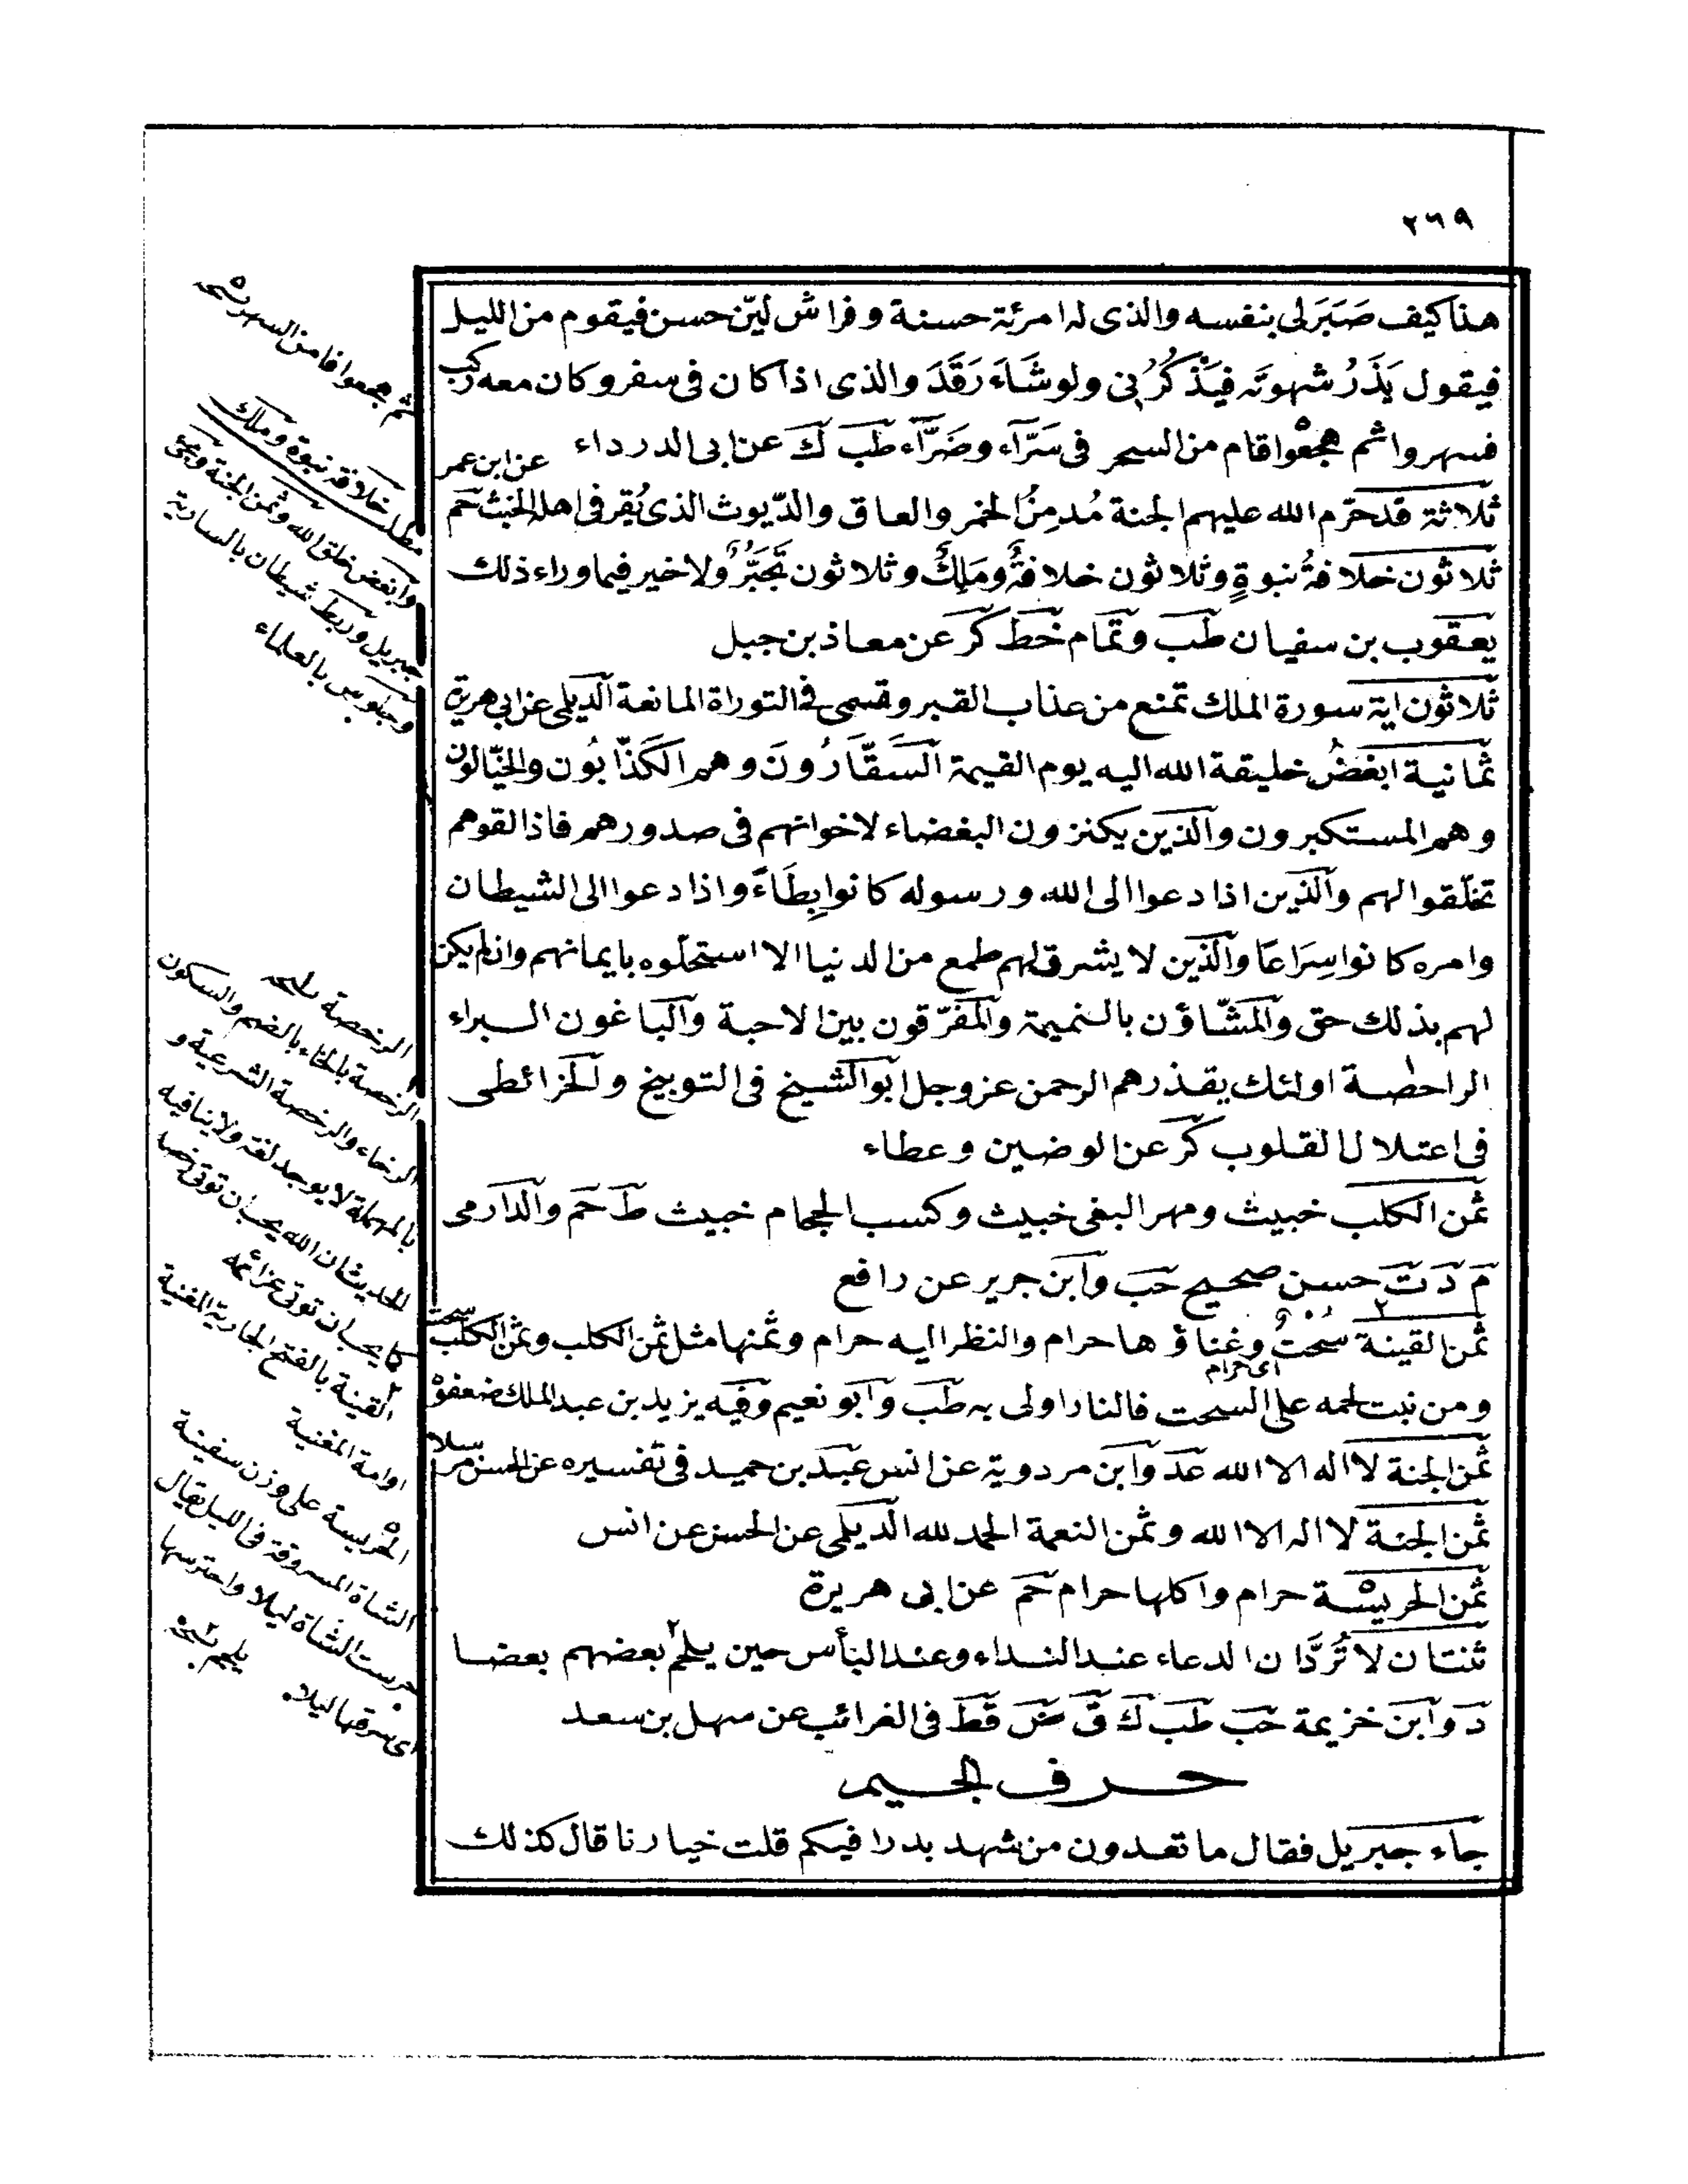 ٢٦٩
هذا كيف صَبَرَ لى بنفسه والذى له امرئة حسنة و فراش ليّن حسن فيقوم من الليل
فيقول يَذَرُ شهوتَه فيَذْكُرُنى ولو شَاءَ رَقَدَ والذى اذا كان فى سفر وكان معه ركب
فسهروا ثم هجعوا قام من السحر فى سَرَّآء وضَرَّآء طب ك عن ابى الدرداء عن ابن عمر
ثلاثة قد حرّم الله عليهم الجنة مُدمِنُ الخمر والعاق والدّيوث الذى يُقر فى اهله الخبث حم
ثلاثون خلافةُ نبوةٍ وثلاثون خلافةٌ ومَلِكٌ وثلاثون تَجَبُّرٌ ولا خير فيما وراء ذلك
يعقوب بن سفيان طب وتمام خط كر عن معاذ بن جبل
ثلاثون اية سورة الملك تمنع من عذاب القبر وتسمى فى التوراة المانعة الديلمى عن ابى هريرة
ثمانية ابغضُ خليقة الله اليه يوم القيمة السَقّارُونَ وهم الكَذّابُون والخيّالون
وهم المستكبرون والذين يكنزون البغضاء لاخوانهم فى صدورهم فاذا لقوهم
تخلّقوا لهم والذين اذا دعوا الى الله ورسوله كانوا بِطَاءً واذا دعوا الى الشيطان
وامره كانوا سِرَاعًا والذين لا يشرق لهم طمع من الدنيا الا استحلّوه بايمانهم وان لم يكن
لهم بذلك حق والمشّاؤن بالنميمة والمفرّقون بين الاحبة والباغون البراء
الراحصة اولئك يقذرهم الرحمن عز وجل ابو الشيخ فى التوبيخ والخرائطى
فى اعتلال القلوب كر عن الوضين وعطاء
ثمن الكلب خبيث ومهر البغى خبيث وكسب الحجام خبيث ط حم والدارمى
م د ت حسن صحيح حب وابن جرير عن رافع
ثمن القينة سُحتٌ وغناؤها حرام والنظر اليه حرام وثمنها مثل ثمن الكلب وثمن الكلب سحت
اى حرام
ومن نبت لحمه على السحت فالنار اولى به طب وابو نعيم وفيه يزيد بن عبد الملك ضعفوه
ثمن الجنة لا اله الا الله عد وابن مردوية عن انس عبد بن حميد فى تفسيره عن الحسن مرسلا
ثمن الجنة لا اله الا الله وثمن النعمة الحمد لله الديلمى عن الحسن عن انس
ثمن الحريسة حرام واكلها حرام حم عن ابى هريرة
ثنتان لا تُرَدّان الدعاء عند النداء وعند البأس حين يلحم بعضهم بعضا
د وابن خزيمة حب طب ك ق ض قط فى الغرائب عن سهل بن سعد
حرف الجيم
جاء جبريل فقال ما تعدون من شهد بدرا فيكم قلت خيارنا قال كذلك
ثم هجعوا فقام من السهر نسخه
مطلب خلافة نبوة وملك
وابغض خلق الله وثمن الجنة ومجئ
جبريل وربط شيطان بالسارية
وجلوس بالعلماء
الرخصة نسخه
الرخصة بالخاء بالضم والسكون
الرخاء والرخصة الشرعية و
بالمهملة لا يوجد لغة ولا ينافيه
الحديث ان الله يحب ان تؤتى رخصه
كما يحب ان تؤتى عزائمه
القينة بالفتح الجارية المغنية
اوامة المغنية
الحريسة على وزن سفينة
الشاة المسروقة فى الليل يقال
حرست الشاة ليلا واحترسها
اى سرقها ليلا.
يلجم نسخه